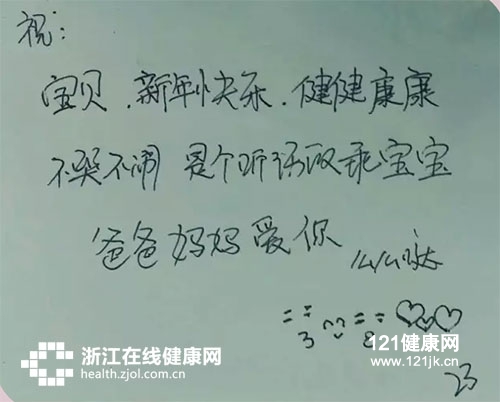 祝:
宝贝.新年快乐.健健康康
不哭不闹 是个听话的乖宝宝
爸爸妈妈爱你 么么哒
浙江在线健康网
health.zjol.com.cn
121健康网
www.121jk.cn
23